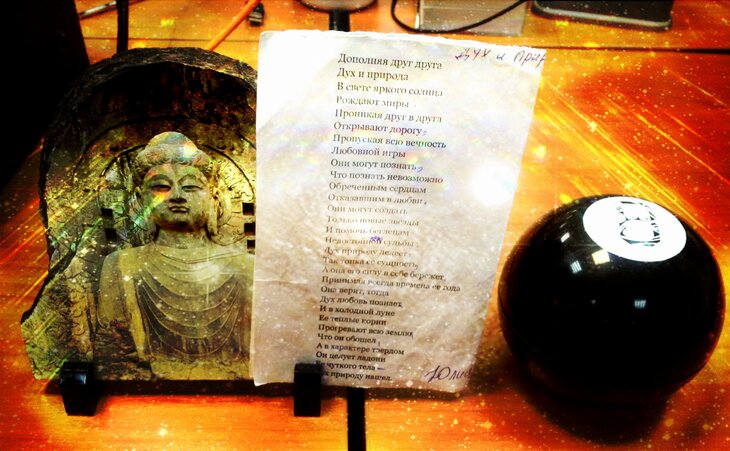 Дух и
Дополняя друг друга
Дух и природа
В свете яркого солнца
Рождают миры
Проникая друг в друга
Открывают дорогу,
Пропуская всю вечность
Любовной игры
Они могут познать,
Что познать невозможно
Обреченным сердцам
Отказавшим в любви,
Они могут создать
Только новые звезды
И помочь беглецам
судьбы
Дух природу лелеет
Так тонка ее сущность
А она его силу в себе бережет,
Принимая всегда времена ее года
Она верит, тогда
Дух любовь познает,
И в холодной луне
Ее теплые корни
Прогревают всю землю
Что он обошел
А в характере твердом
Он целует ладони
Ее чуткого тела
Дух природу нашел.